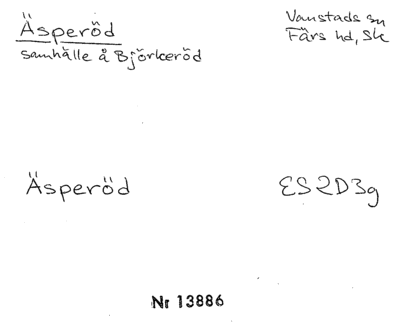 Äsperöd
Vanstads sn
samhälle å Björkeröd
Färs hd, Sk
Äsperöd
ES2D3g
Nr 13886